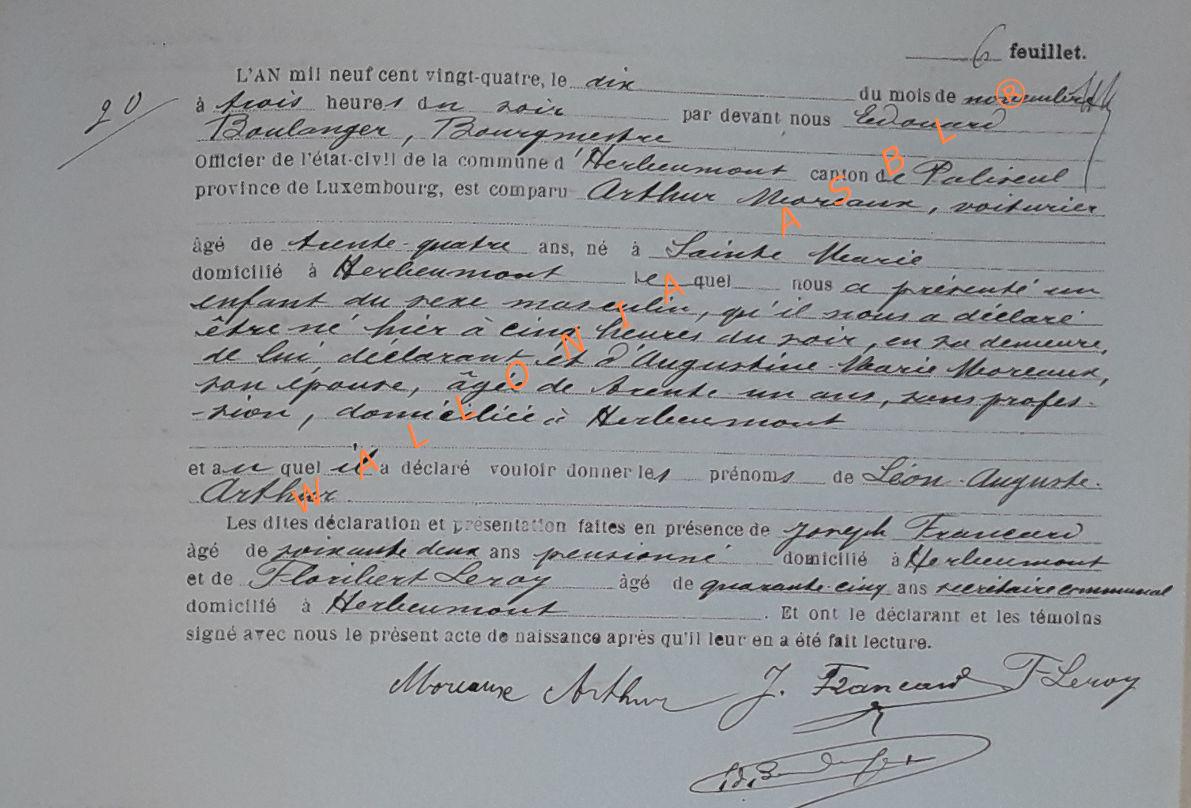 6 feuillet.
L'AN mil neuf cent vingt-quatre, le dix du mois de novembre
20
à trois heures du soir par devant nous Edouard
Boulanger, Bourgmestre
Officier de l'état-civil de la commune d'Herbeumont canton de Paliseul
province de Luxembourg, est comparu Arthur Moreaux, voiturier
âgé de trente-quatre ans, né à Sainte Marie
domicilié à Herbeumont lequel nous a présenté un
enfant du sexe masculin, qu'il nous a déclaré
être né hier à cinq heures du soir, en sa demeure,
de lui déclarant et d'Augustine-Marie Moreaux,
son épouse, âgée de trente un ans, sans profes-
-sion, domiciliée à Herbeumont
et auquel il a déclaré vouloir donner les prénoms de Léon-Auguste-
Arthur
Les dites déclaration et présentation faites en présence de Joseph Francard
âgé de soixante deux ans pensionné domicilié à Herbeumont
et de Floribert Leroy âgé de quarante-cinq ans secrétaire communal
domicilié à Herbeumont. Et ont le déclarant et les témoins
signé avec nous le présent acte de naissance après qu'il leur en a été fait lecture.
Moreaux Arthur J. Francard F Leroy
WALLONIA ASBL ®